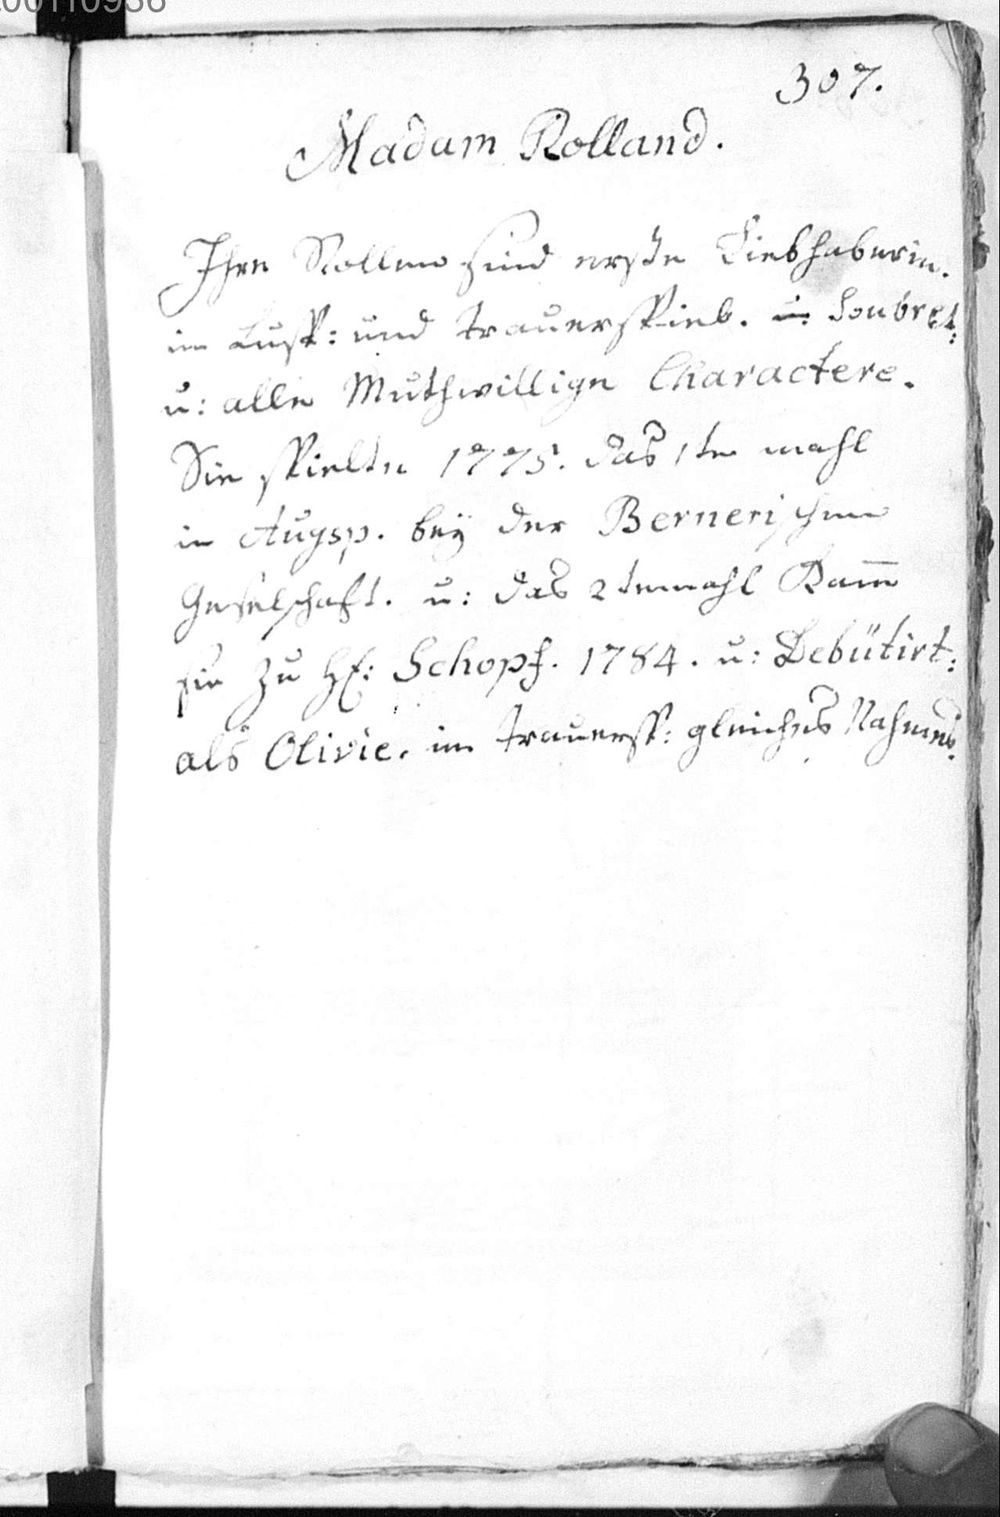 00110936
307.
Madam Rolland.
Ihre Rollen sind erste Liebhaberin.
im Lust: und Trauerspield. u: Soubret:
u: alle Muthwillige Charactere.
Sie spielte 1775. das 1te mahl
in Augsp. beÿ der Bernerischen
Geselschaft. u: das 2temahl Kam̅
sie zu H: Schopf. 1784. u: Debütirt:
als Olivie. im Trauersp: gleiches Nahmens.